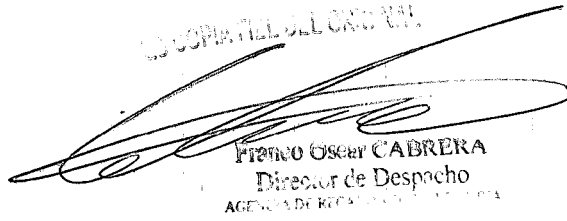 ES COPIA FIEL DEL ORIGINAL
Franco Oscar CABRERA
Director de Despacho
AGENCIA DE